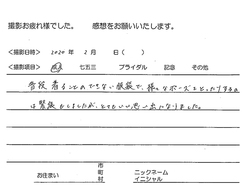 撮影お疲れ様でした。 感想をお願いいたします。
<撮影日時> 2020年 2月 日( )
<撮影項目> 七五三 ブライダル 記念 その他
普段着ることのできない服装で、様々なポーズをとったりするのは
緊張もしましたが、とてもいい思い出になりました。
お住まい 市 町 村 ニックネーム イニシャル